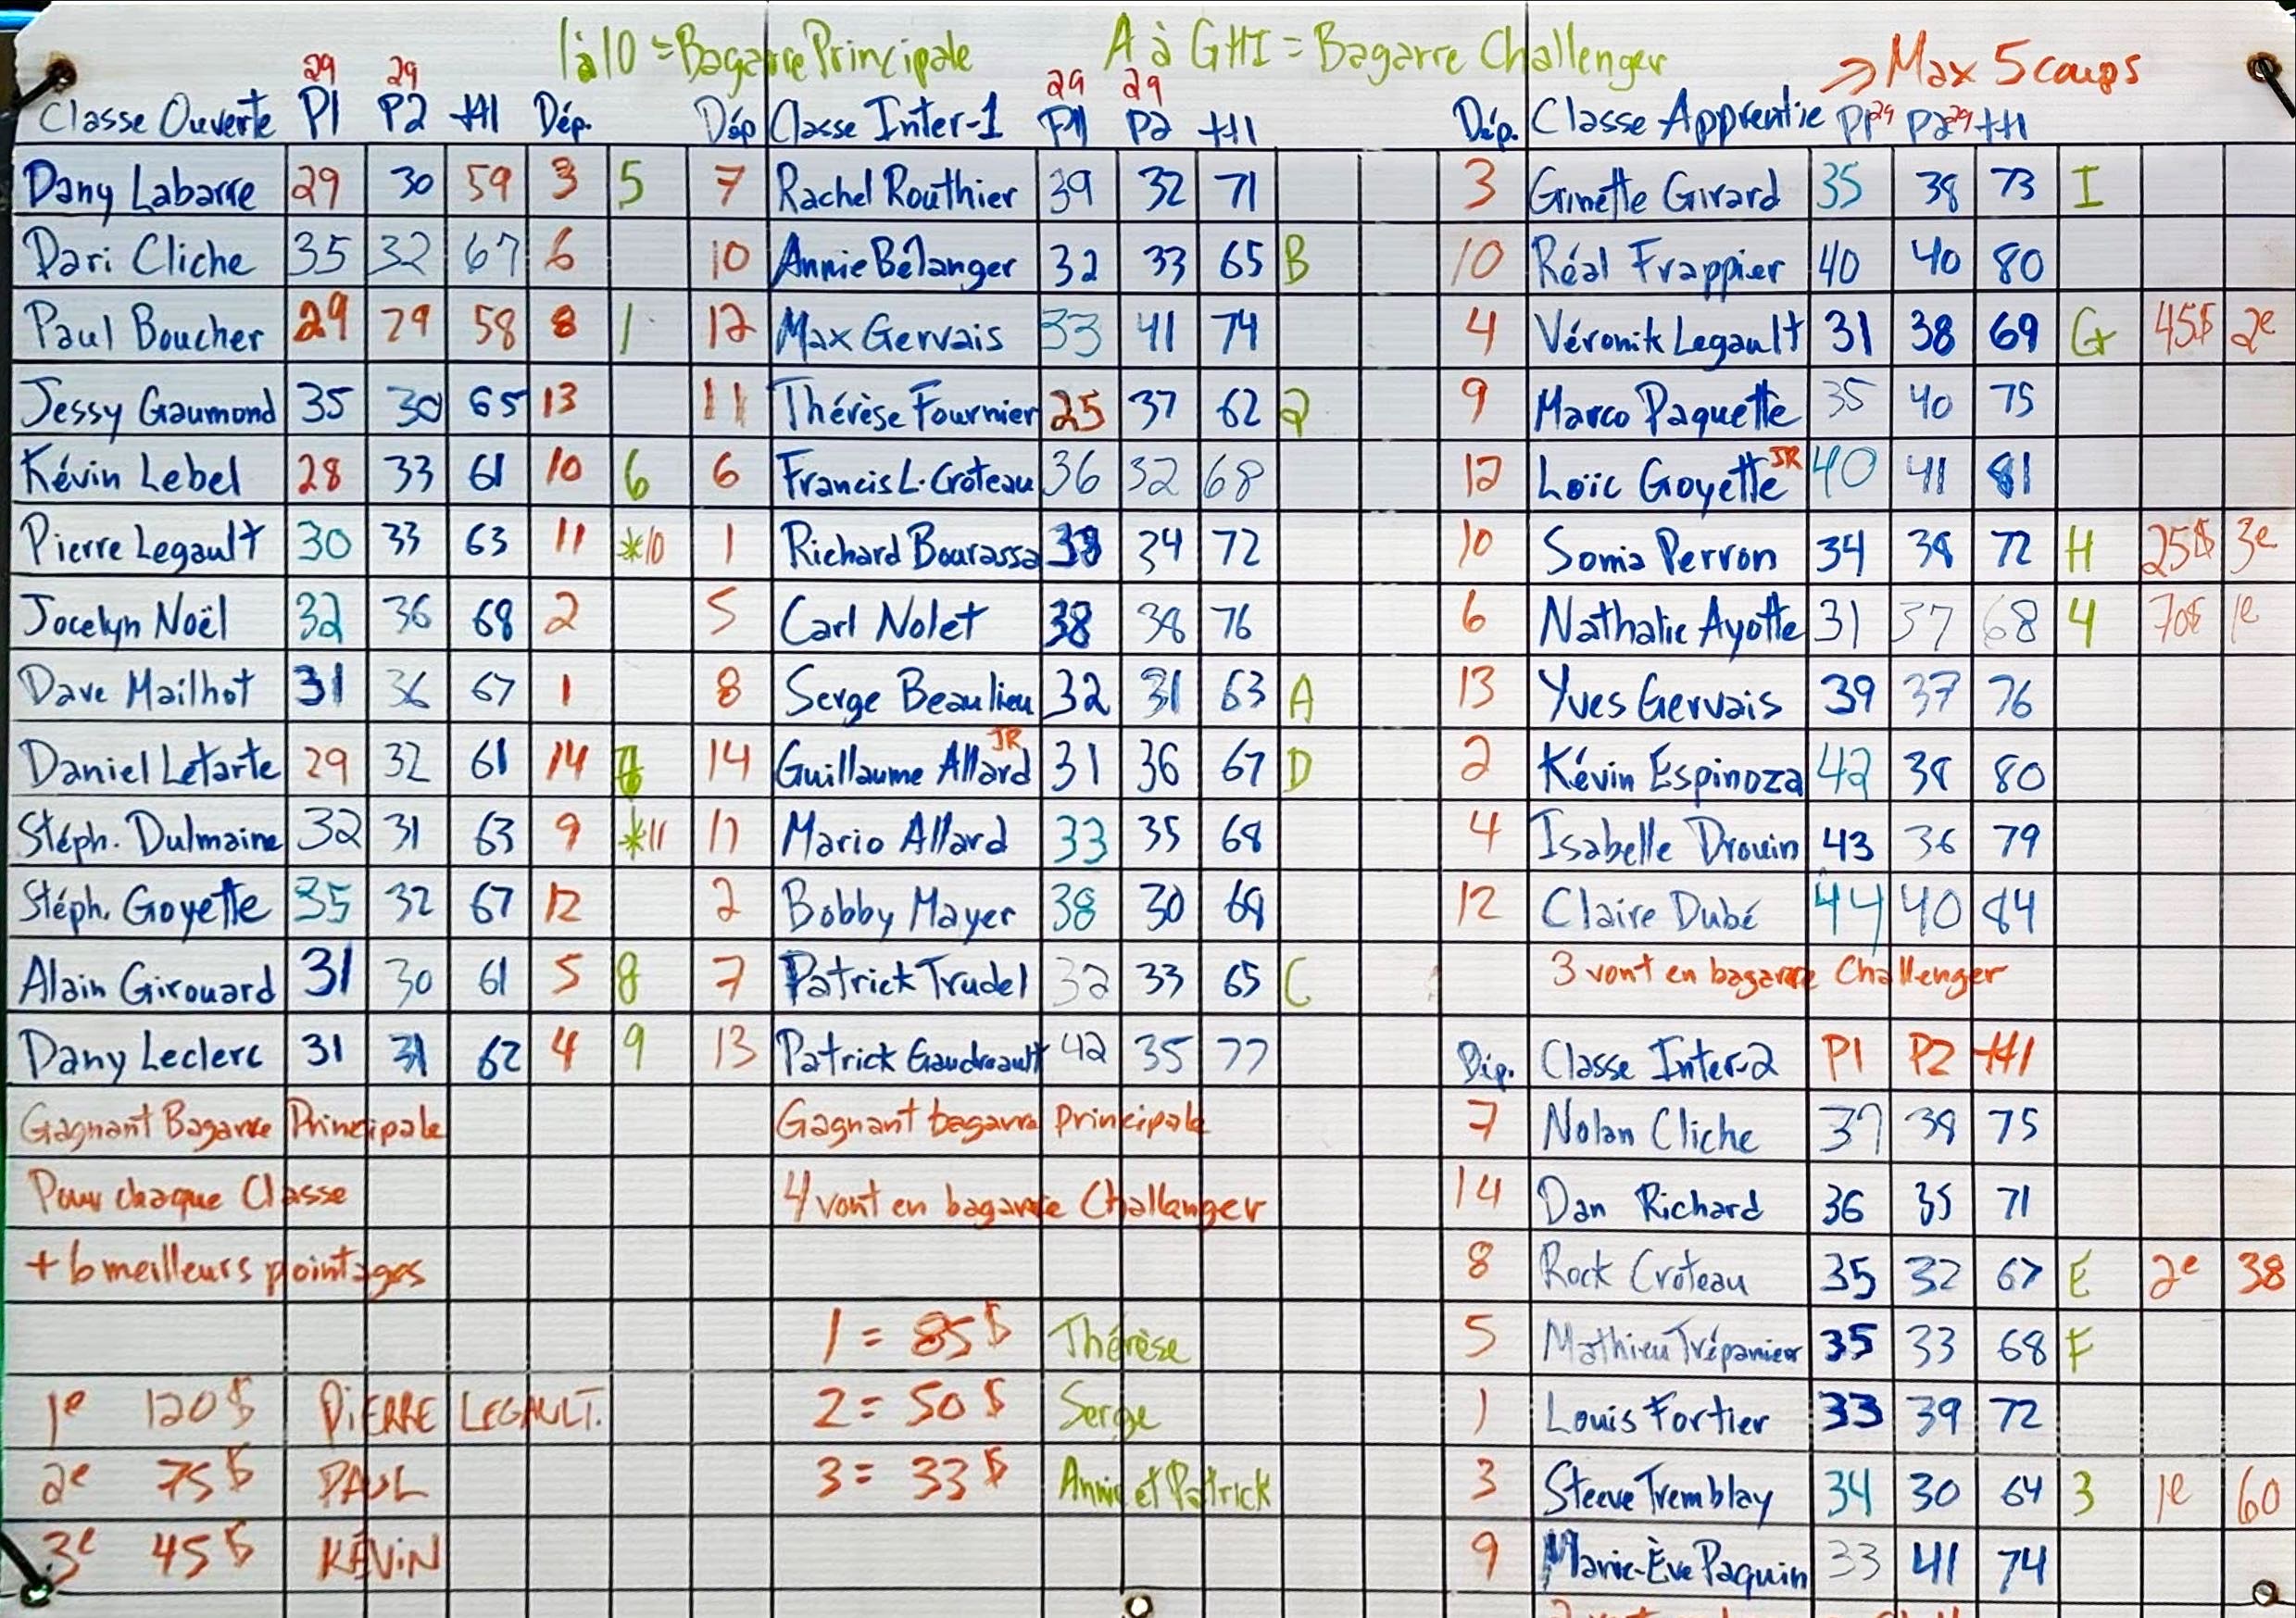 1 à 10 = Bagarre Principale A à GHI = Bagarre Challenger → Max 5 coups
29 29 29 29 29 29
Classe Ouverte P1 P2 #1 Dép. Dép Classe Inter-1 P1 P2 #1 Dép. Classe Apprentie P1 P2 #1
Dany Labarre 29 30 59 3 5 7 Rachel Routhier 39 32 71 3 Ginette Girard 35 38 73 I
Dari Cliche 35 32 67 6 10 Annie Bélanger 32 33 65 B 10 Réal Frappier 40 40 80
Paul Boucher 29 29 58 8 1 12 Max Gervais 33 41 74 4 Véronik Legault 31 38 69 G 45$ 2e
Jessy Gaumond 35 30 65 13 11 Thérèse Fournier 25 37 62 2 9 Marco Paquette 35 40 75
Kévin Lebel 28 33 61 10 6 6 Francis L. Croteau 36 32 68 12 Loïc Goyette JR 40 41 81
Pierre Legault 30 33 63 11 *10 1 Richard Bourassa 38 34 72 10 Sonia Perron 34 38 72 H 25$ 3e
Jocelyn Noël 32 36 68 2 5 Carl Nolet 38 38 76 6 Nathalie Ayotte 31 37 68 4 70$ 1e
Dave Mailhot 31 36 67 1 8 Serge Beaulieu 32 31 63 A 13 Yves Gervais 39 37 76
Daniel Letarte 29 32 61 14 14 Guillaume Allard JR 31 36 67 D 2 Kévin Espinoza 42 38 80
Stéph. Dulmaine 32 31 63 9 *11 11 Mario Allard 33 35 68 4 Isabelle Drouin 43 36 79
Stéph. Goyette 35 32 67 12 2 Bobby Mayer 38 30 68 12 Claire Dubé 44 40 84
Alain Girouard 31 30 61 5 8 7 Patrick Trudel 32 33 65 C 3 vont en bagarre Challenger
Dany Leclerc 31 31 62 4 9 13 Patrick Gaudreault 42 35 77 Dép. Classe Inter-2 P1 P2 #1
Gagnant Bagarre Principale Gagnant bagarre principale 7 Nolan Cliche 37 38 75
Pour chaque Classe 4 vont en bagarre Challenger 14 Dan Richard 36 35 71
+ 6 meilleurs pointages 8 Rock Croteau 35 32 67 E 2e 38
1 = 85$ Thérèse 5 Mathieu Trépanier 35 33 68 F
1e 120$ PIERRE LEGAULT. 2 = 50$ Serge 1 Louis Fortier 33 39 72
2e 75$ PAUL 3 = 33$ Annie et Patrick 3 Steeve Tremblay 34 30 64 3 1e 60
3e 45$ KÉVIN 9 Marie-Ève Paquin 33 41 74